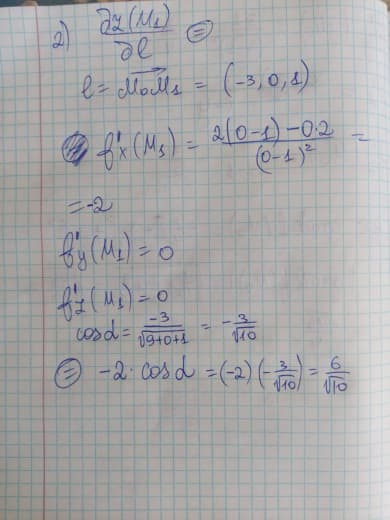 2) ∂z(M₁)/∂l ⊜
l = M₀M₁ = (-3, 0, 1)
f'x(M₁) = 2(0-1)-0·2/(0-1)² =
= -2
f'y(M₁) = 0
f'z(M₁) = 0
cosα = -3/√9+0+1 = -3/√10
⊜ -2·cosα = (-2)(-3/√10) = 6/√10